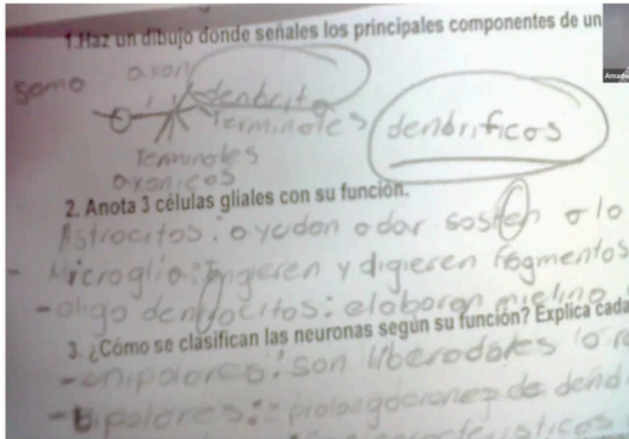 1.Haz un dibujo donde señales los principales componentes de un
Amado
axon
somo
dendrita
Terminales
dendrificos
Terminales
axonicos
2. Anota 3 células gliales con su función.
Astrocitos: ayudan a dar sosten a lo
- Microglia: Ingieren y digieren fragmentos
- oligo dendocitos: elaboran mielina
3. ¿Cómo se clasifican las neuronas según su función? Explica cada
- unipolares: son liberadores
- Bipolares: prolongaciones de dend